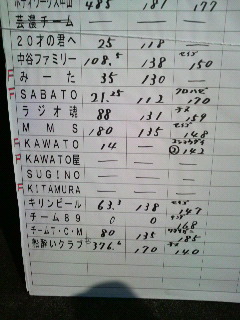 ボディワークス中山 485 181 177
芸濃チーム — — —
２０才の君へ 25 118
中谷ファミリー 108.5 138 150
F みーた 35 130 —
F SABATO 21.25 112 170
ラジオ魂 88 131 159
MMS 180 135 148
F KAWATO 14 — ② 142
F KAWATO屋 — — —
SUGINO — — —
F KITAMURA — — —
キリンビール 63.3 138 147
チーム８９ 0 0 168
チームT・C・M 80 135 185
酔いクラブ 376.6 170 140